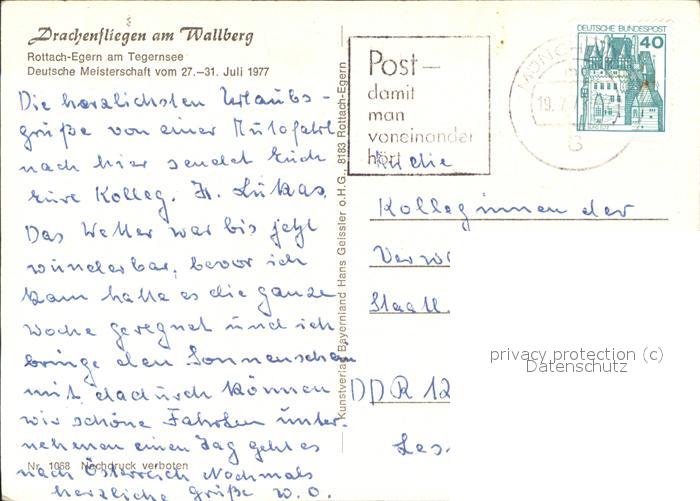 Drachenfliegen am Wallberg
Rottach-Egern am Tegernsee
Deutsche Meisterschaft vom 27.–31. Juli 1977
Die herzlichsten Urlaubs-
grüße von einer Autofahrt
nach hier sendet Euch
Eure Kolleg. H. Lukas.
Das Wetter war bis jetzt
wunderbar, bevor ich
kam hatte es die ganze
Woche geregnet und ich
bringe den Sonnenschein
mit, dadurch können
wir schöne Fahrten unter-
nehmen einen Tag geht es
nach Österreich Nochmals
herzliche Grüße w. o.
Nr. 1068 Nachdruck verboten
Kunstverlag Bayernland Hans Geissler o.H.G., 8183 Rottach-Egern
Post–
damit
man
voneinander
hört
MÜNCH
19.7.
8
DEUTSCHE BUNDESPOST
40
An die
Kolleginnen der
Staatl.
DDR 12
privacy protection (c)
Datenschutz